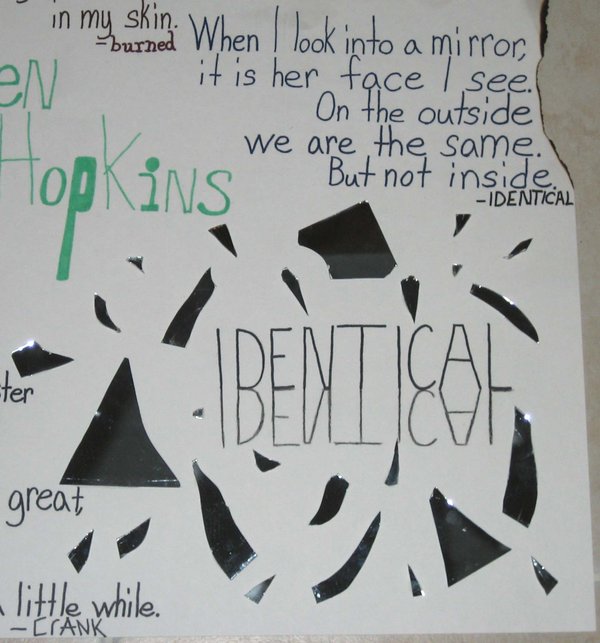 in my skin.
-burned
When I look into a mirror,
it is her face I see.
On the outside
we are the same.
But not inside.
-IDENTICAL
eN
HopKiNS
IDENTICAL
ter
great,
little while.
- CrANK